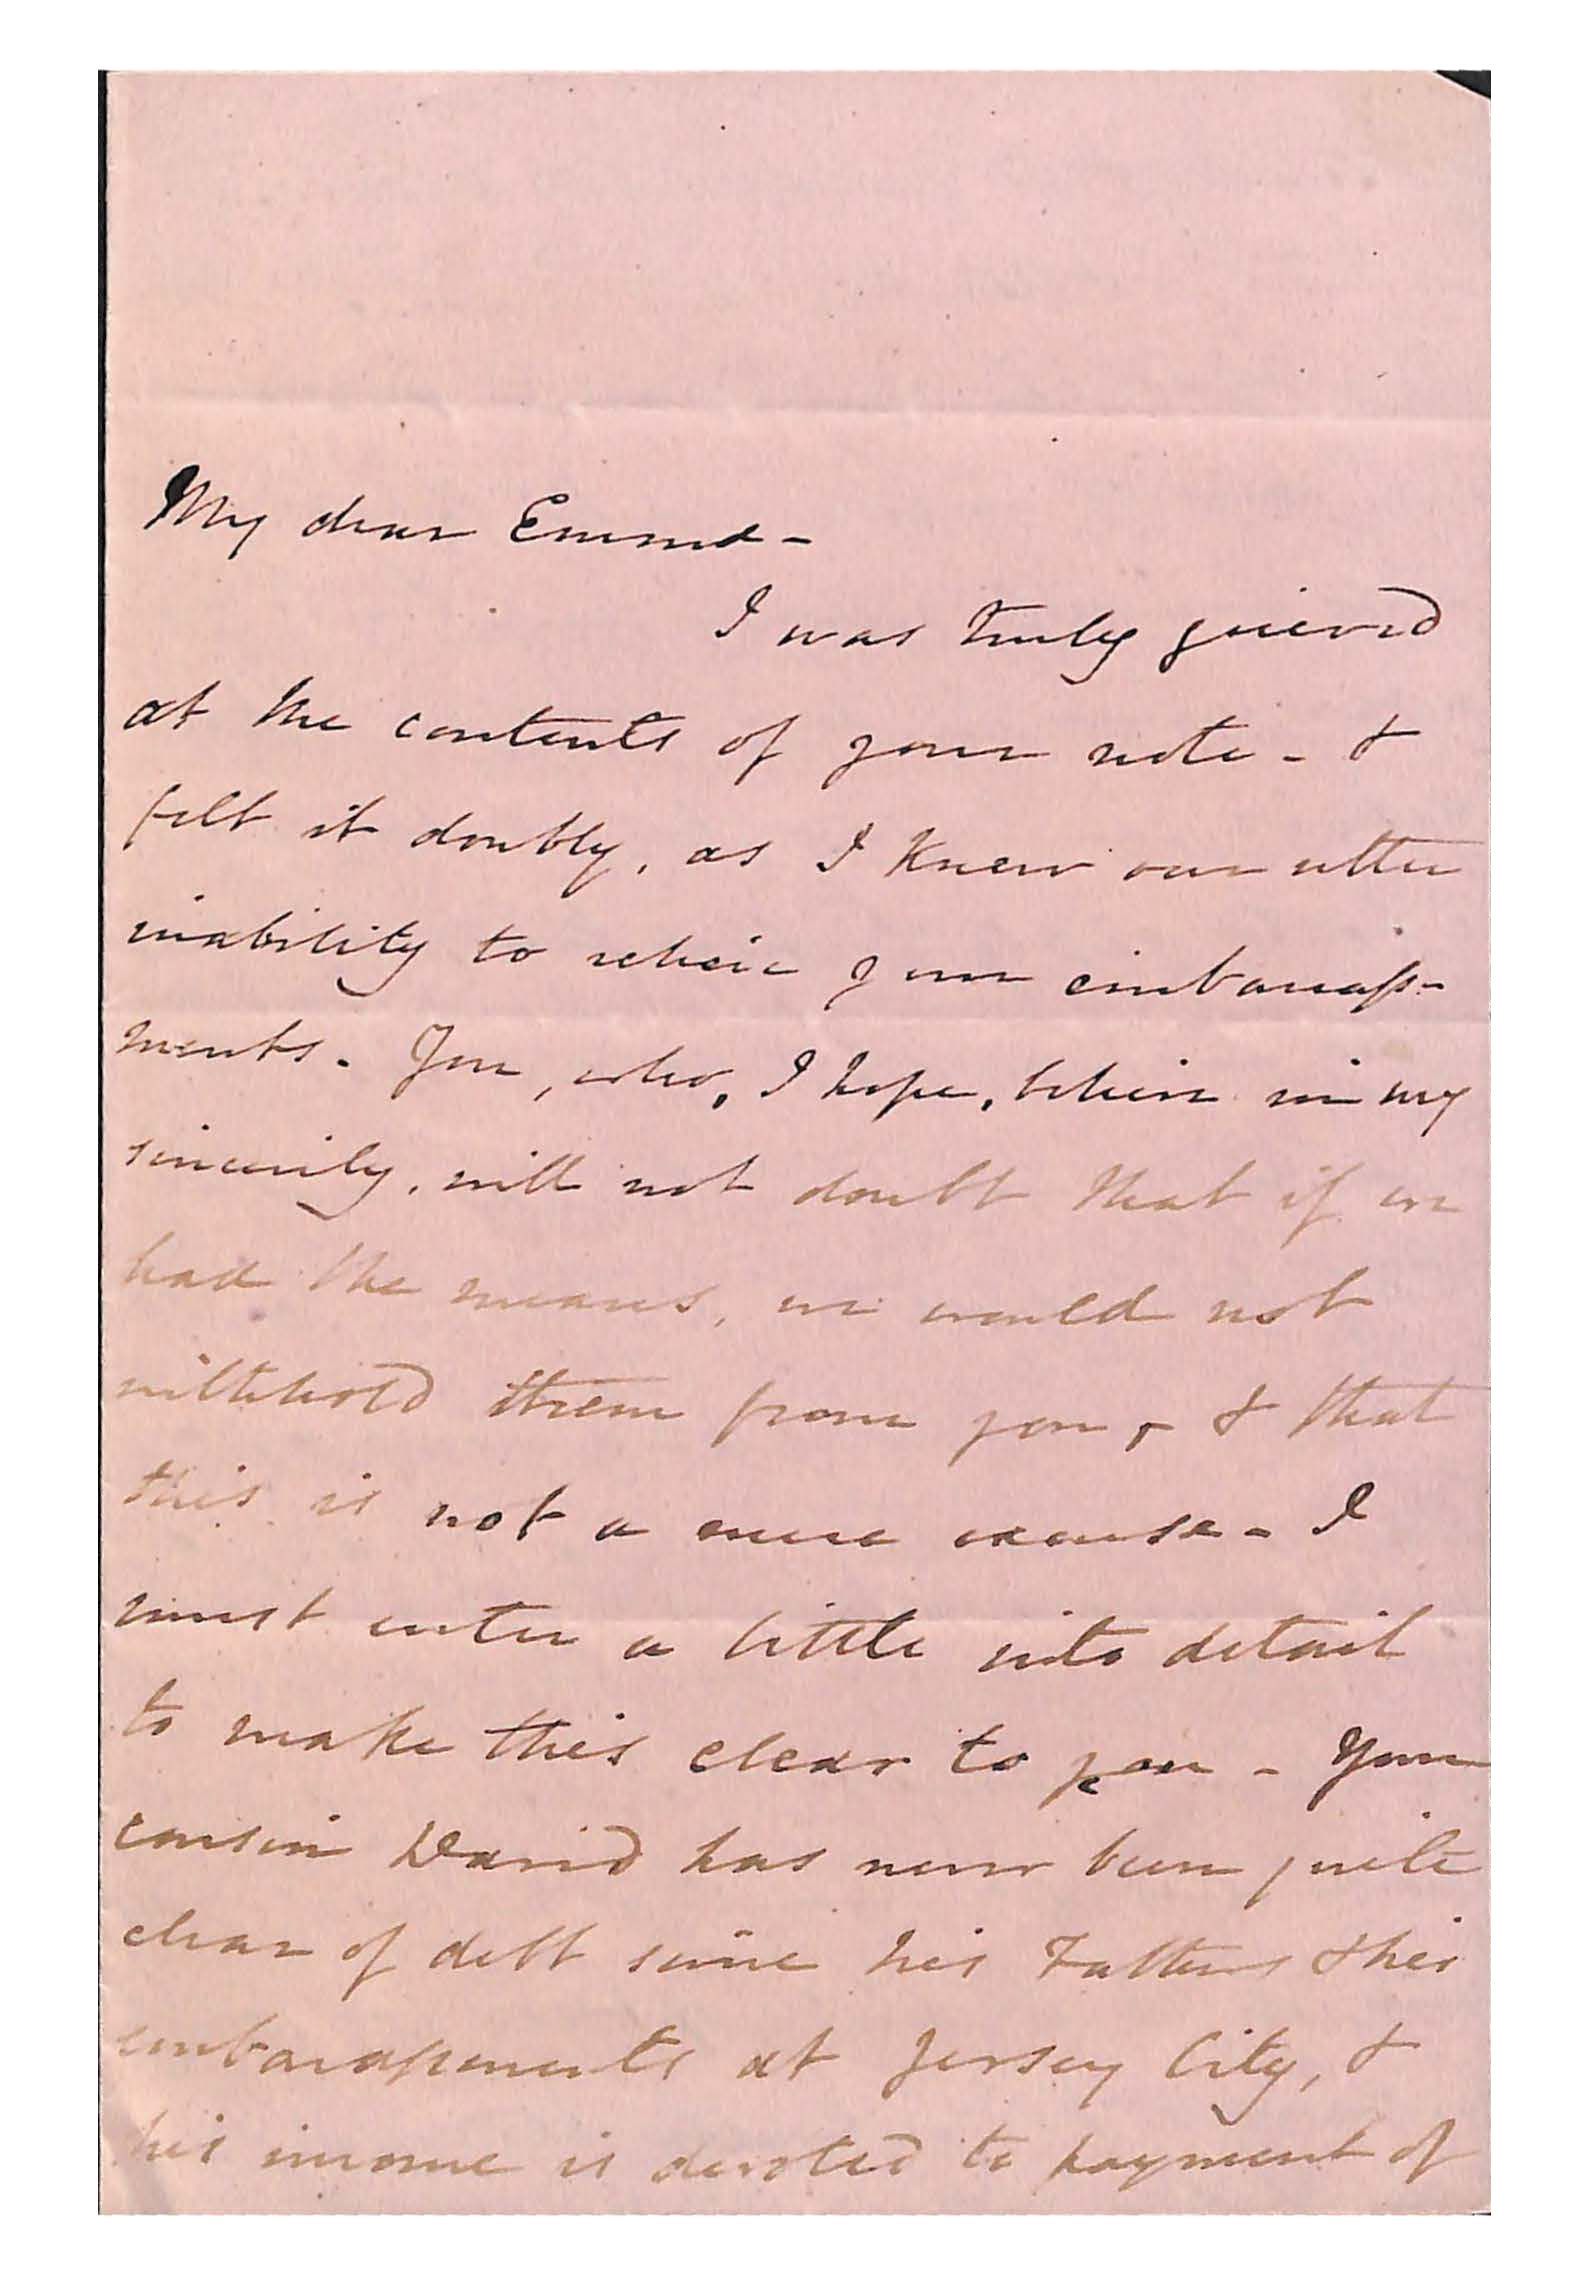 My dear Emma -
I was truly grieved
at the contents of your note - &
felt it doubly, as I knew our utter
inability to relieve your embarrass-
ments. You, who, I hope, believe in my
sincerity, will not doubt that if we
had the means, we would not
withhold them from you, & that
this is not a mere excuse - I
must enter a little into detail
to make this clear to you - Your
cousin David has never been quite
clear of debt since his Fathers & his
embarassments at Jersey City, &
his income is devoted to payment of